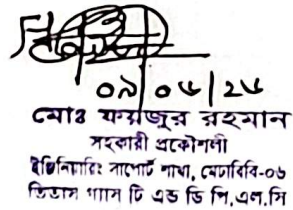 ০৯/০৫/২৫
মোঃ ফয়জুর রহমান
সহকারী প্রকৌশলী
ইঞ্জিনিয়ারিং সাপোর্ট শাখা, মেটোবিবি-০৬
তিতাস গ্যাস টি এন্ড ডি পি,এল,সি